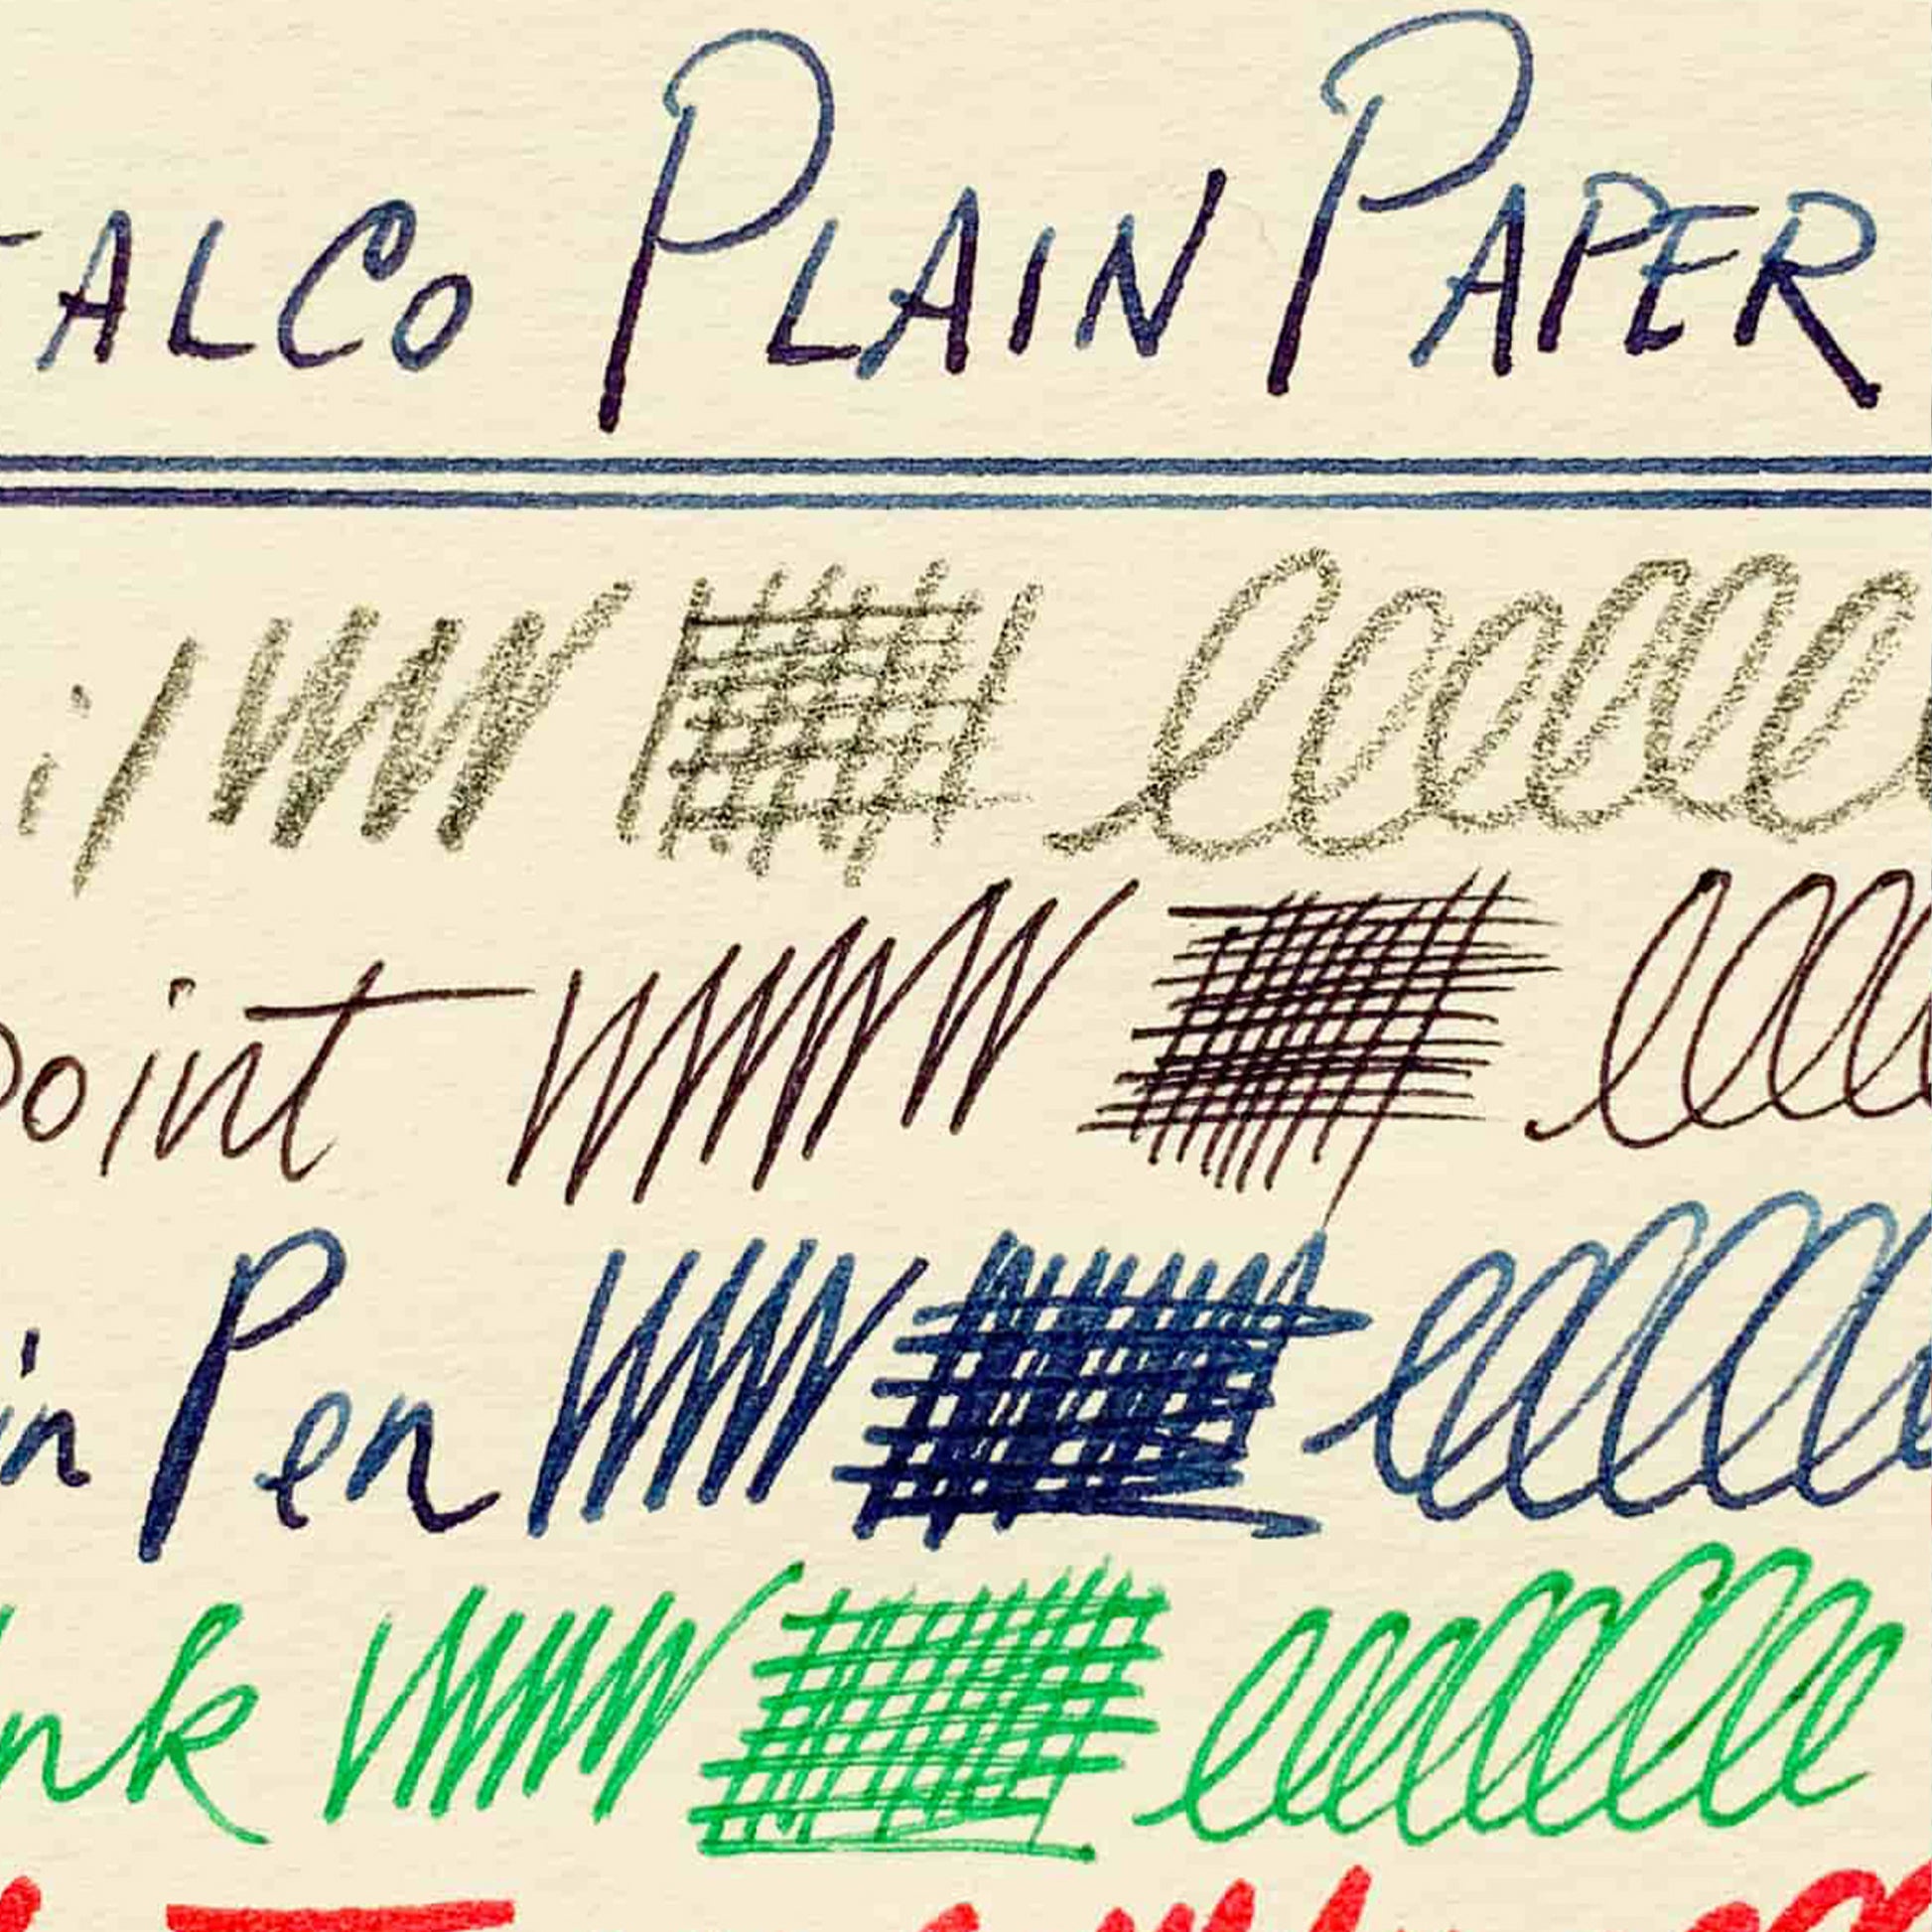 ALCO PLAIN PAPER
il
point
in Pen
nk